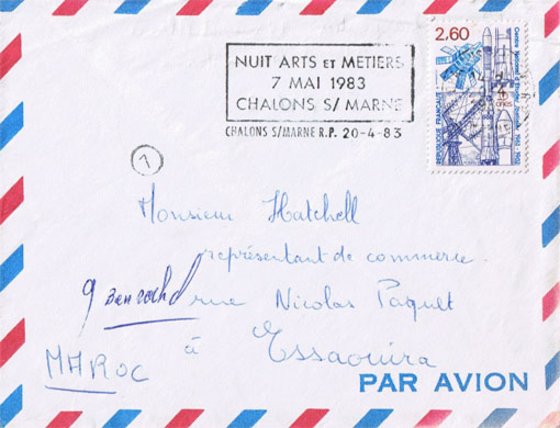 2,60
NUIT ARTS ET METIERS
7 MAI 1983
CHALONS S/ MARNE
CHALONS S/MARNE R.P. 20-4-83
REPUBLIQUE FRANÇAISE
1
Monsieur Hatchell
représentant de commerce
9 rue Nicolas Paquet
à Essaouira
MAROC
PAR AVION